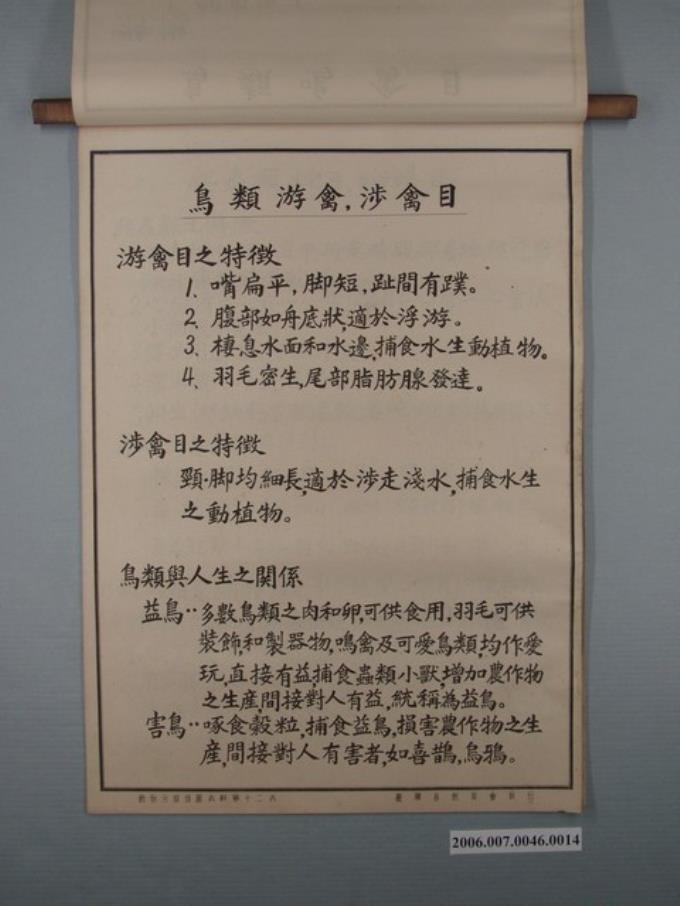 鳥類游禽,涉禽目
游禽目之特徵
1. 嘴扁平,脚短,趾間有蹼。
2. 腹部如舟底狀,適於浮游。
3. 棲息水面和水邊,捕食水生動植物。
4. 羽毛密生,尾部脂肪腺發達。
涉禽目之特徵
頸·脚均細長,適於涉走淺水,捕食水生
之動植物。
鳥類與人生之關係
益鳥··多數鳥類之肉和卵,可供食用,羽毛可供
裝飾,和製器物,鳴禽及可愛鳥類,均作愛
玩,直接有益,捕食蟲類小獸,增加農作物
之生産,間接對人有益,統稱為益鳥。
害鳥··啄食穀粒,捕食益鳥,損害農作物之生
産,間接對人有害者,如喜鵲,烏鴉。
2006.007.0046.0014